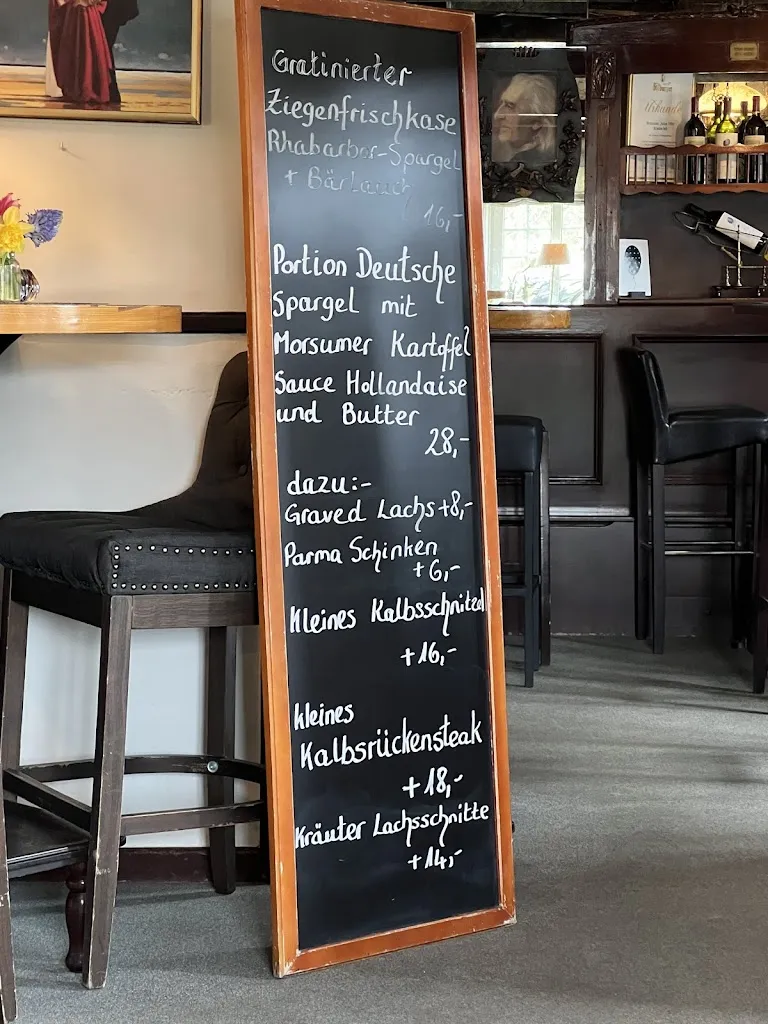 Gratinierter
Ziegenfrischkäse
Rhabarbar-Spargel
+ Bärlauch
16,-
Portion Deutsche
Spargel mit
Morsumer Kartoffel
Sauce Hollandaise
und Butter
28,-
dazu:-
Graved Lachs +8,-
Parma Schinken
+6,-
Kleines Kalbsschnitzel
+16,-
kleines
Kalbsrückensteak
+18,-
Kräuter Lachsschnitte
+14,-
Urkunde